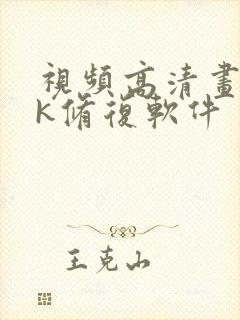 視頻高清畫
K脩復軟件
王克山